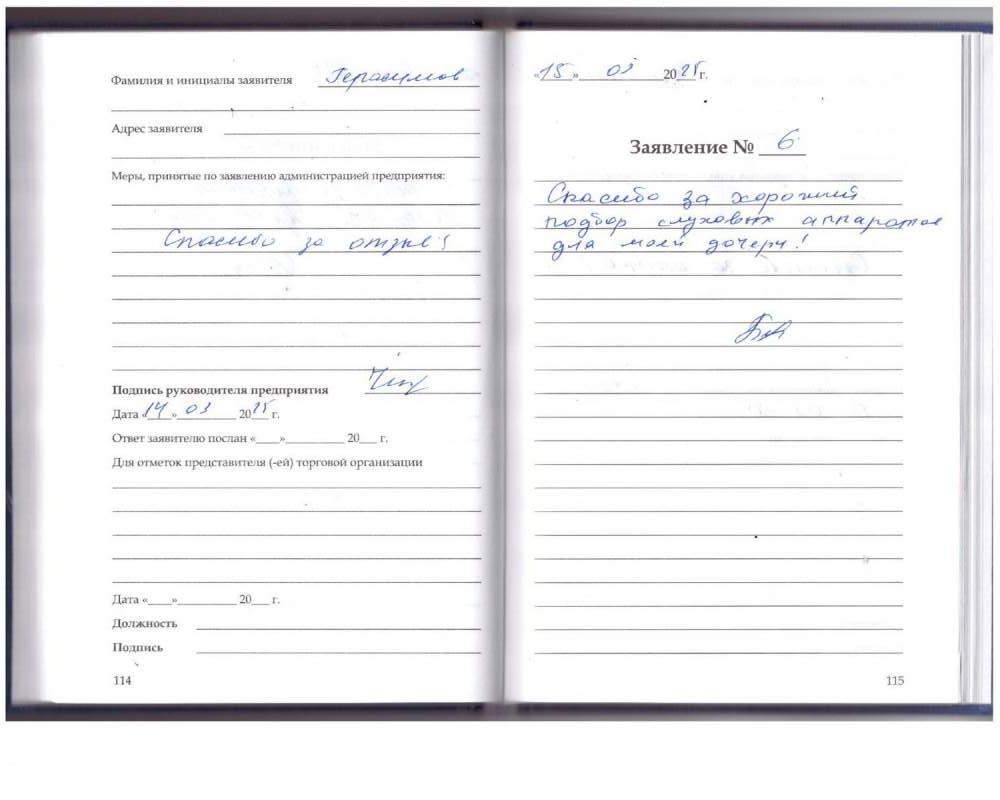 Фамилия и инициалы заявителя Герасимов
Адрес заявителя
Меры, принятые по заявлению администрацией предприятия:
Спасибо за отзыв!
Подпись руководителя предприятия
Дата «14» 03 2025 г.
Ответ заявителю послан «____»__________ 20___ г.
Для отметок представителя (-ей) торговой организации
Дата «____»__________ 20___ г.
Должность
Подпись
114
«15» 03 2025 г.
Заявление № 6
Спасибо за хороший
подбор слуховых аппаратов
для моей дочери!
115